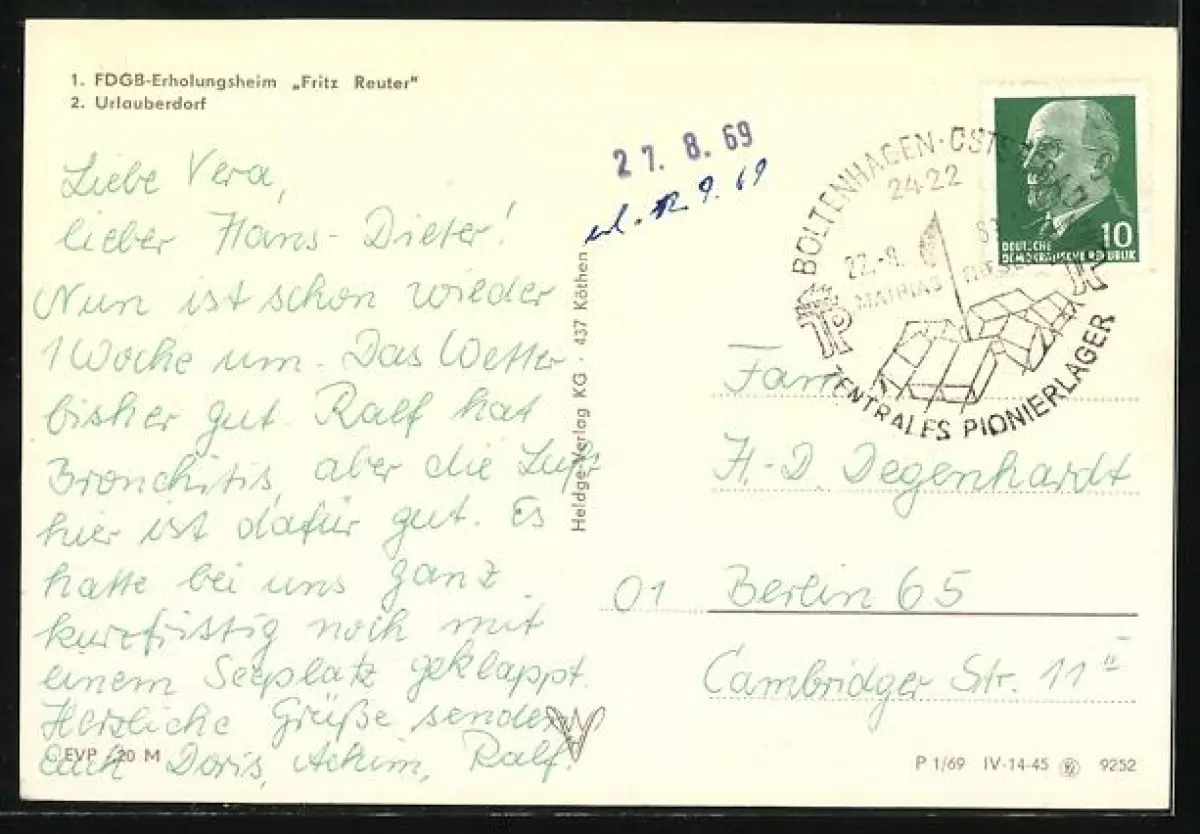 1. FDGB-Erholungsheim „Fritz Reuter"
2. Urlauberdorf
Liebe Vera,
lieber Hans-Dieter!
Nun ist schon wieder
1 Woche um. Das Wetter
bisher gut. Ralf hat
Bronchitis, aber die Luft
hier ist dafür gut. Es
hatte bei uns ganz
kurzfristig noch mit
einem Seeplatz geklappt.
Herzliche Grüße senden
Euch Doris, Achim, Ralf.
EVP 20 M
Heldge-Verlag KG · 437 Köthen
27. 8. 69
9. 69
BOLTENHAGEN-OSTSEEBAD
2422
22.-8.
MATHIAS
ZENTRALES PIONIERLAGER
10
DEUTSCHE
DEMOKRATISCHE REPUBLIK
Fam.
H.-D. Degenhardt
01 Berlin 65
Cambridger Str. 11 II
P 1/69 IV-14-45 9252